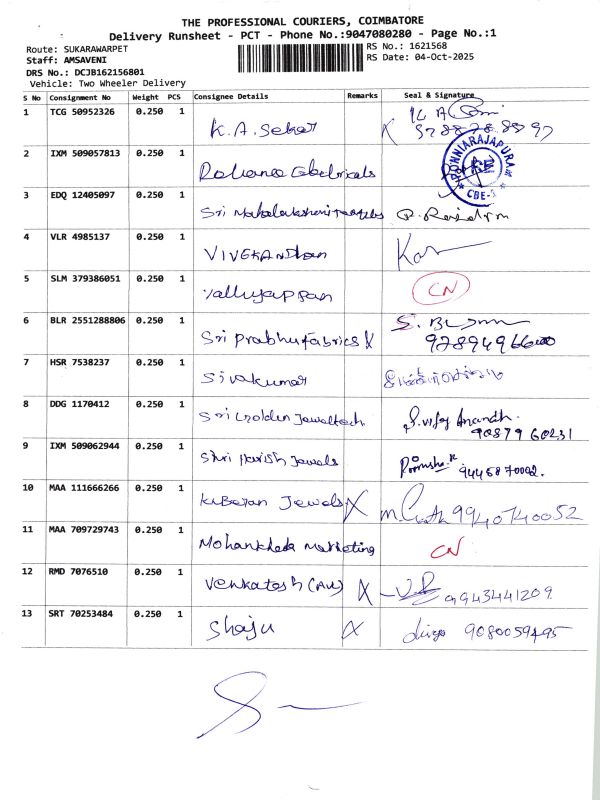 THE PROFESSIONAL COURIERS, COIMBATORE
Delivery Runsheet - PCT - Phone No.:9047080280 - Page No.:1
Route: SUKARAWARPET
RS No.: 1621568
Staff: AMSAVENI
RS Date: 04-Oct-2025
DRS No.: DCJB162156801
Vehicle: Two Wheeler Delivery
S No Consignment No Weight PCS Consignee Details Remarks Seal & Signature
1 TCG 50952326 0.250 1 K.A. Sekar
2 IXM 509057813 0.250 1 Reliance Electricals
PONNIARAJAPURAM CBE-1
3 EDQ 12405097 0.250 1 Sri Mahalakshmi
4 VLR 4985137 0.250 1 VIVEKANDhan
5 SLM 379386051 0.250 1 CN
6 BLR 2551288806 0.250 1 Sri Prabhu fabrics X
7 HSR 7538237 0.250 1 Sivakumar
8 DDG 1170412 0.250 1 Sri Golden Jeweltech S. Vijay Anandh.
90879 60231
9 IXM 509062944 0.250 1 Shri Harish Jewels 9445870002.
10 MAA 111666266 0.250 1 Kuberan Jewels X 9940740052
11 MAA 709729743 0.250 1 Mohankheda Marketing CN
12 RMD 7076510 0.250 1 Venkatesh (AU) X 9943441209
13 SRT 70253484 0.250 1 Shaju X 9080059495